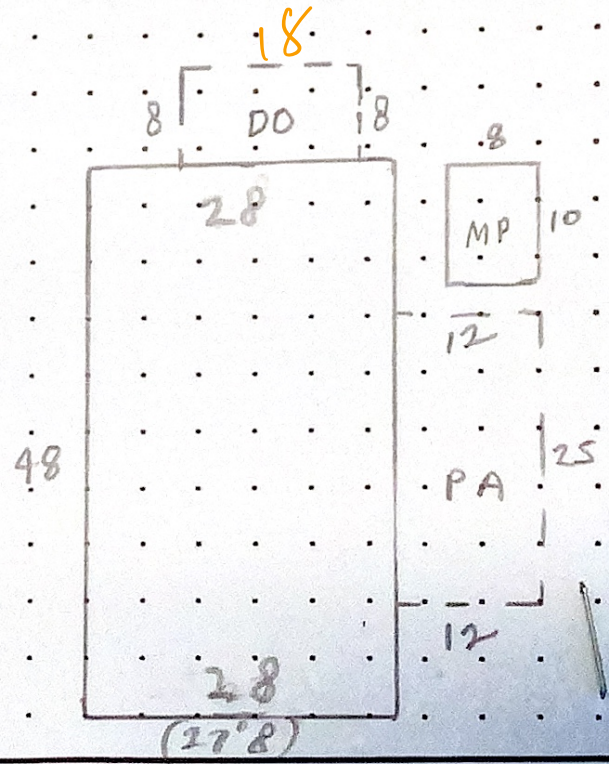 18
8 DO 8
8
28
MP 10
12
48
PA 25
12
28
(27'8)